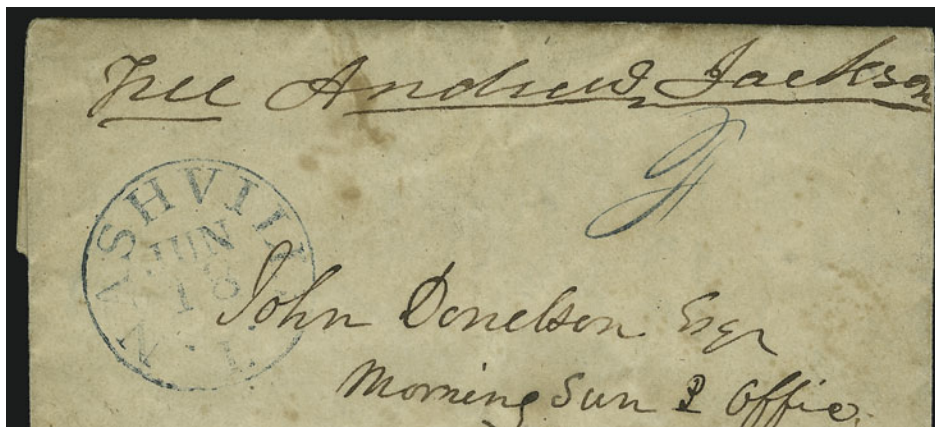 Free Andrew Jackson
NASHVILLE T.
JUN
18
John Donelson Esqr
Morning Sun P Office